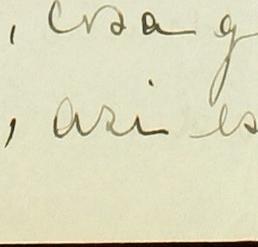 , cosa g
, asi es